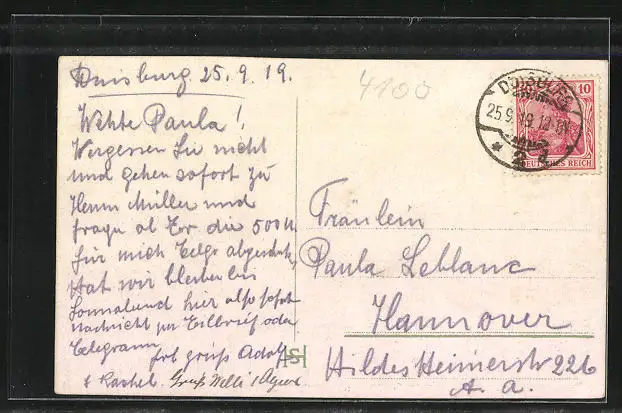 Duisburg. 25. 9. 19.
Wehte Paula!
Vergessen Sie nicht
und gehen sofort zu
Herrn Müller und
frage ob Er die 500 M.
für mich
hat wir bleiben bis
Sonnabend hier also sofort
Nachricht per Eilbrief oder
Telegramm. grüß Adolf
& Rachel. Gruß Willi &
4100
DUISBURG
25.9.19.12
* 2
10
DEUTSCHES REICH
Fräulein
Paula Leblanc
Hannover
Hildesheimerstr 226
A. a.
HS